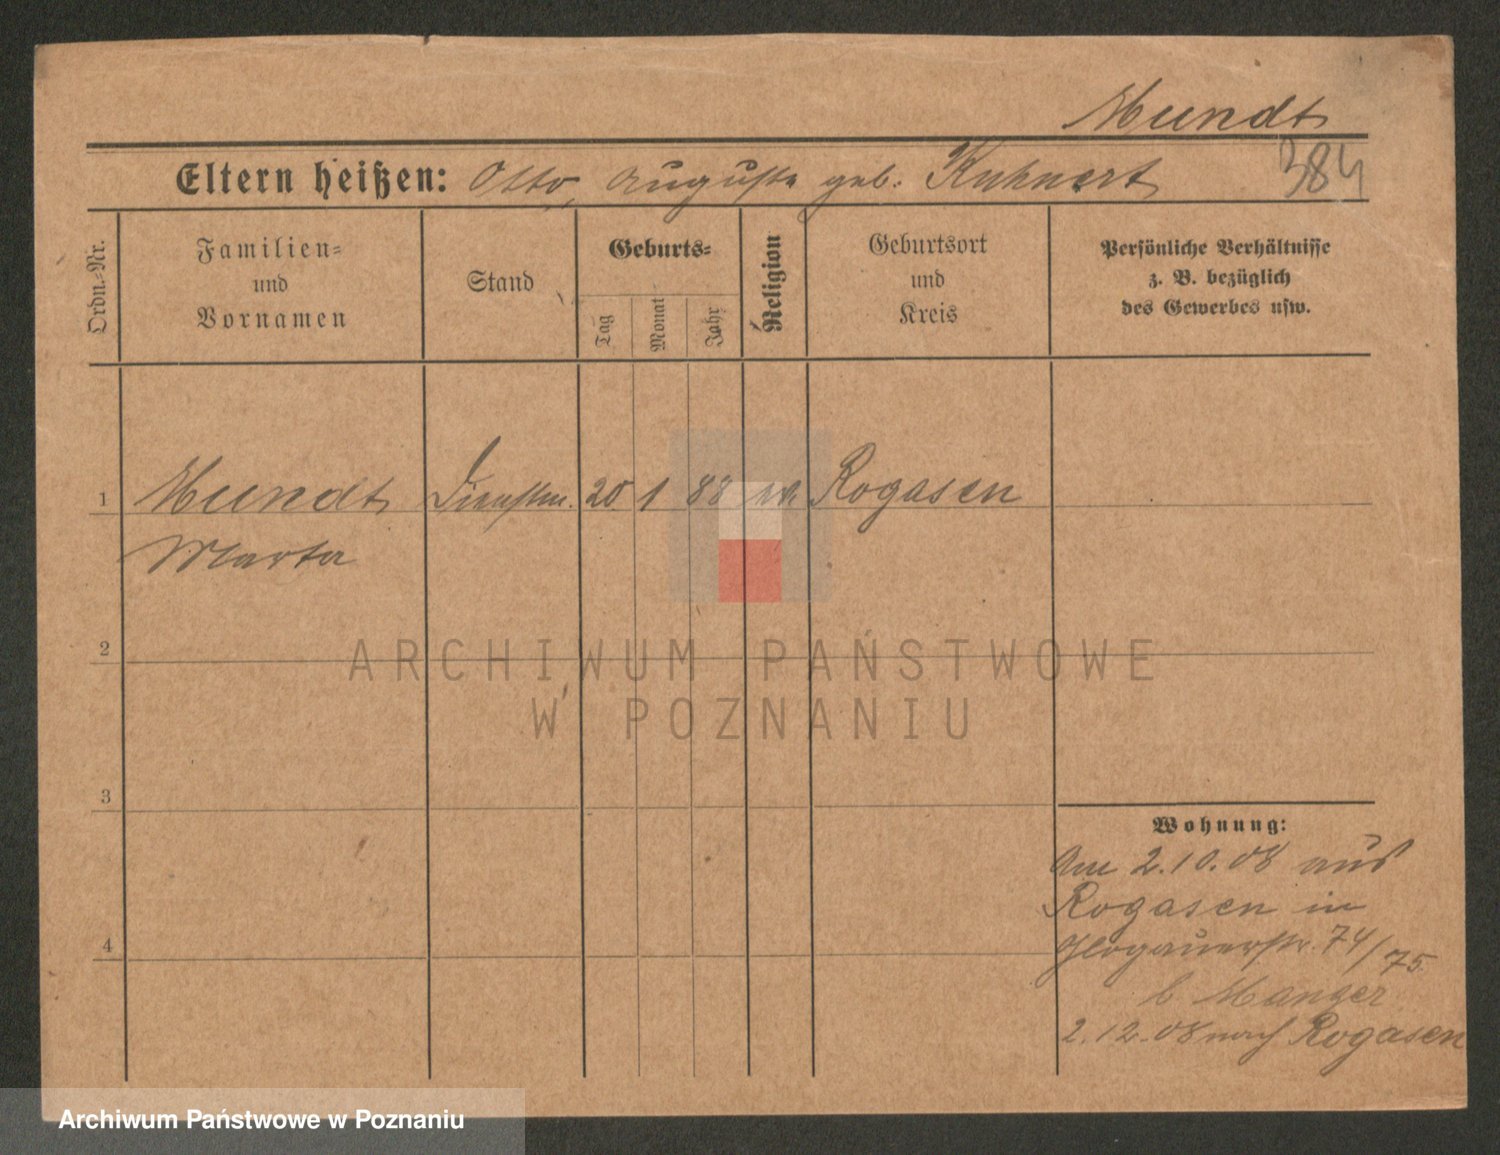 Mundt
Eltern heißen: Otto, Auguste geb. Kuhnert
384
Ordn.-Nr.
Familien-
und
Vornamen
Stand
Geburts-
Tag
Monat
Jahr
Religion
Geburtsort
und
Kreis
Persönliche Verhältnisse
z. B. bezüglich
des Gewerbes usw.
1 Mundt Dienstm. 20 1 88 ev. Rogasen
Marta
2
3
4
Wohnung:
Am 2.10.08 aus
Rogasen in
Glogauerstr. 74/75
b Manger
2.12.08 nach Rogasen
ARCHIWUM PAŃSTWOWE
W POZNANIU
Archiwum Państwowe w Poznaniu